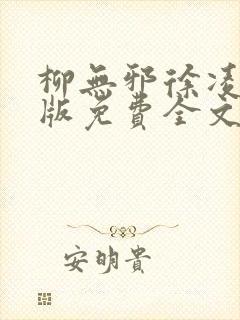 柳無邪徐凌
版免費全文
安明貴